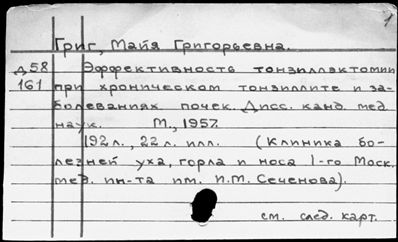 1
Григ, Майя Григорьевна.
Д58 Эффективность тонзиллэктомии
161 при хроническом тонзиллите и за-
болеваниях почек. Дисс. канд. мед.
наук. М., 1957.
192 л., 22 л. илл. (Клиника бо-
лезней уха, горла и носа 1-го Моск.
мед. ин-та им. И.М. Сеченова).
см. след. карт.